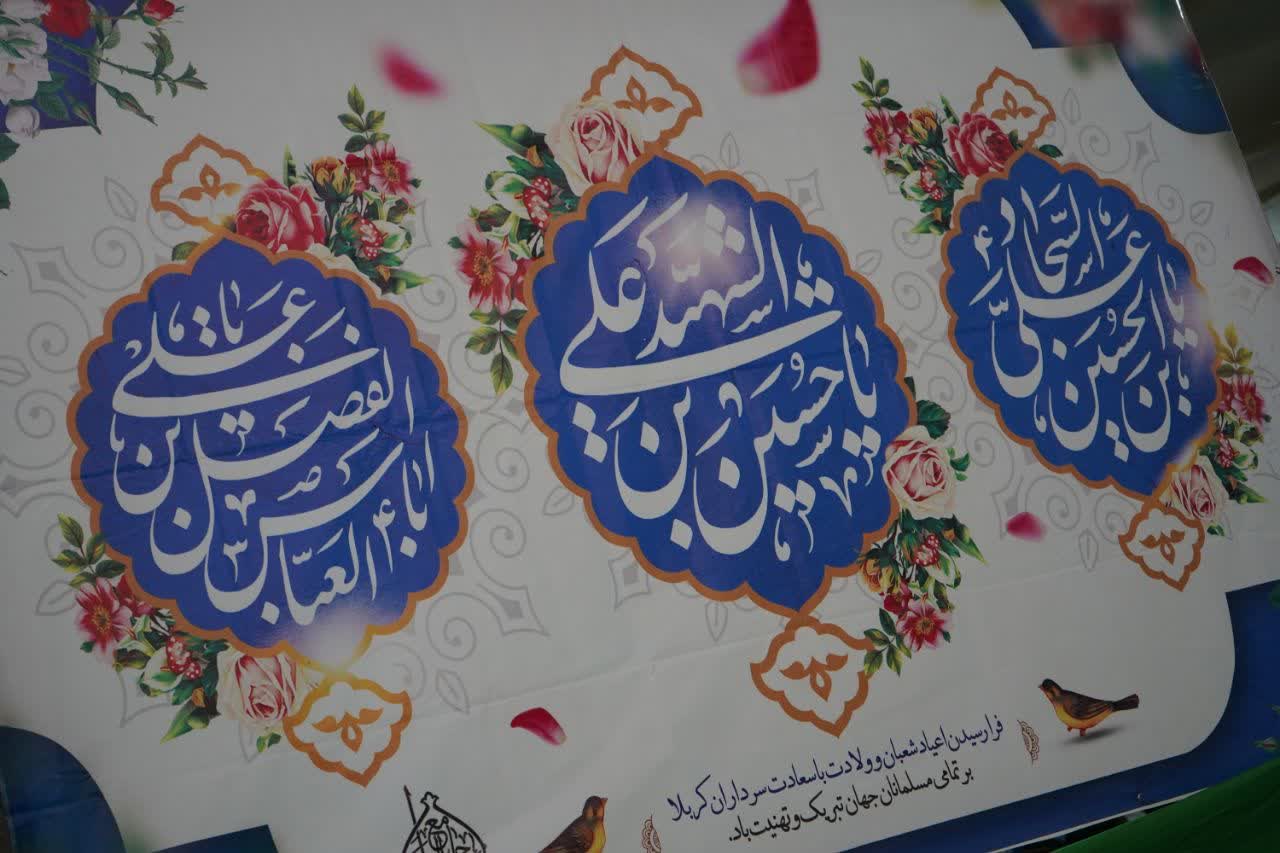 یا علی بن الحسین السجاد
یا حسین بن علی الشهید
یا ابا الفضل العباس بن علی
فرا رسیدن اعیاد شعبان و ولادت با سعادت سرداران کربلا
بر تمامی مسلمانان جهان تبریک و تهنیت باد.